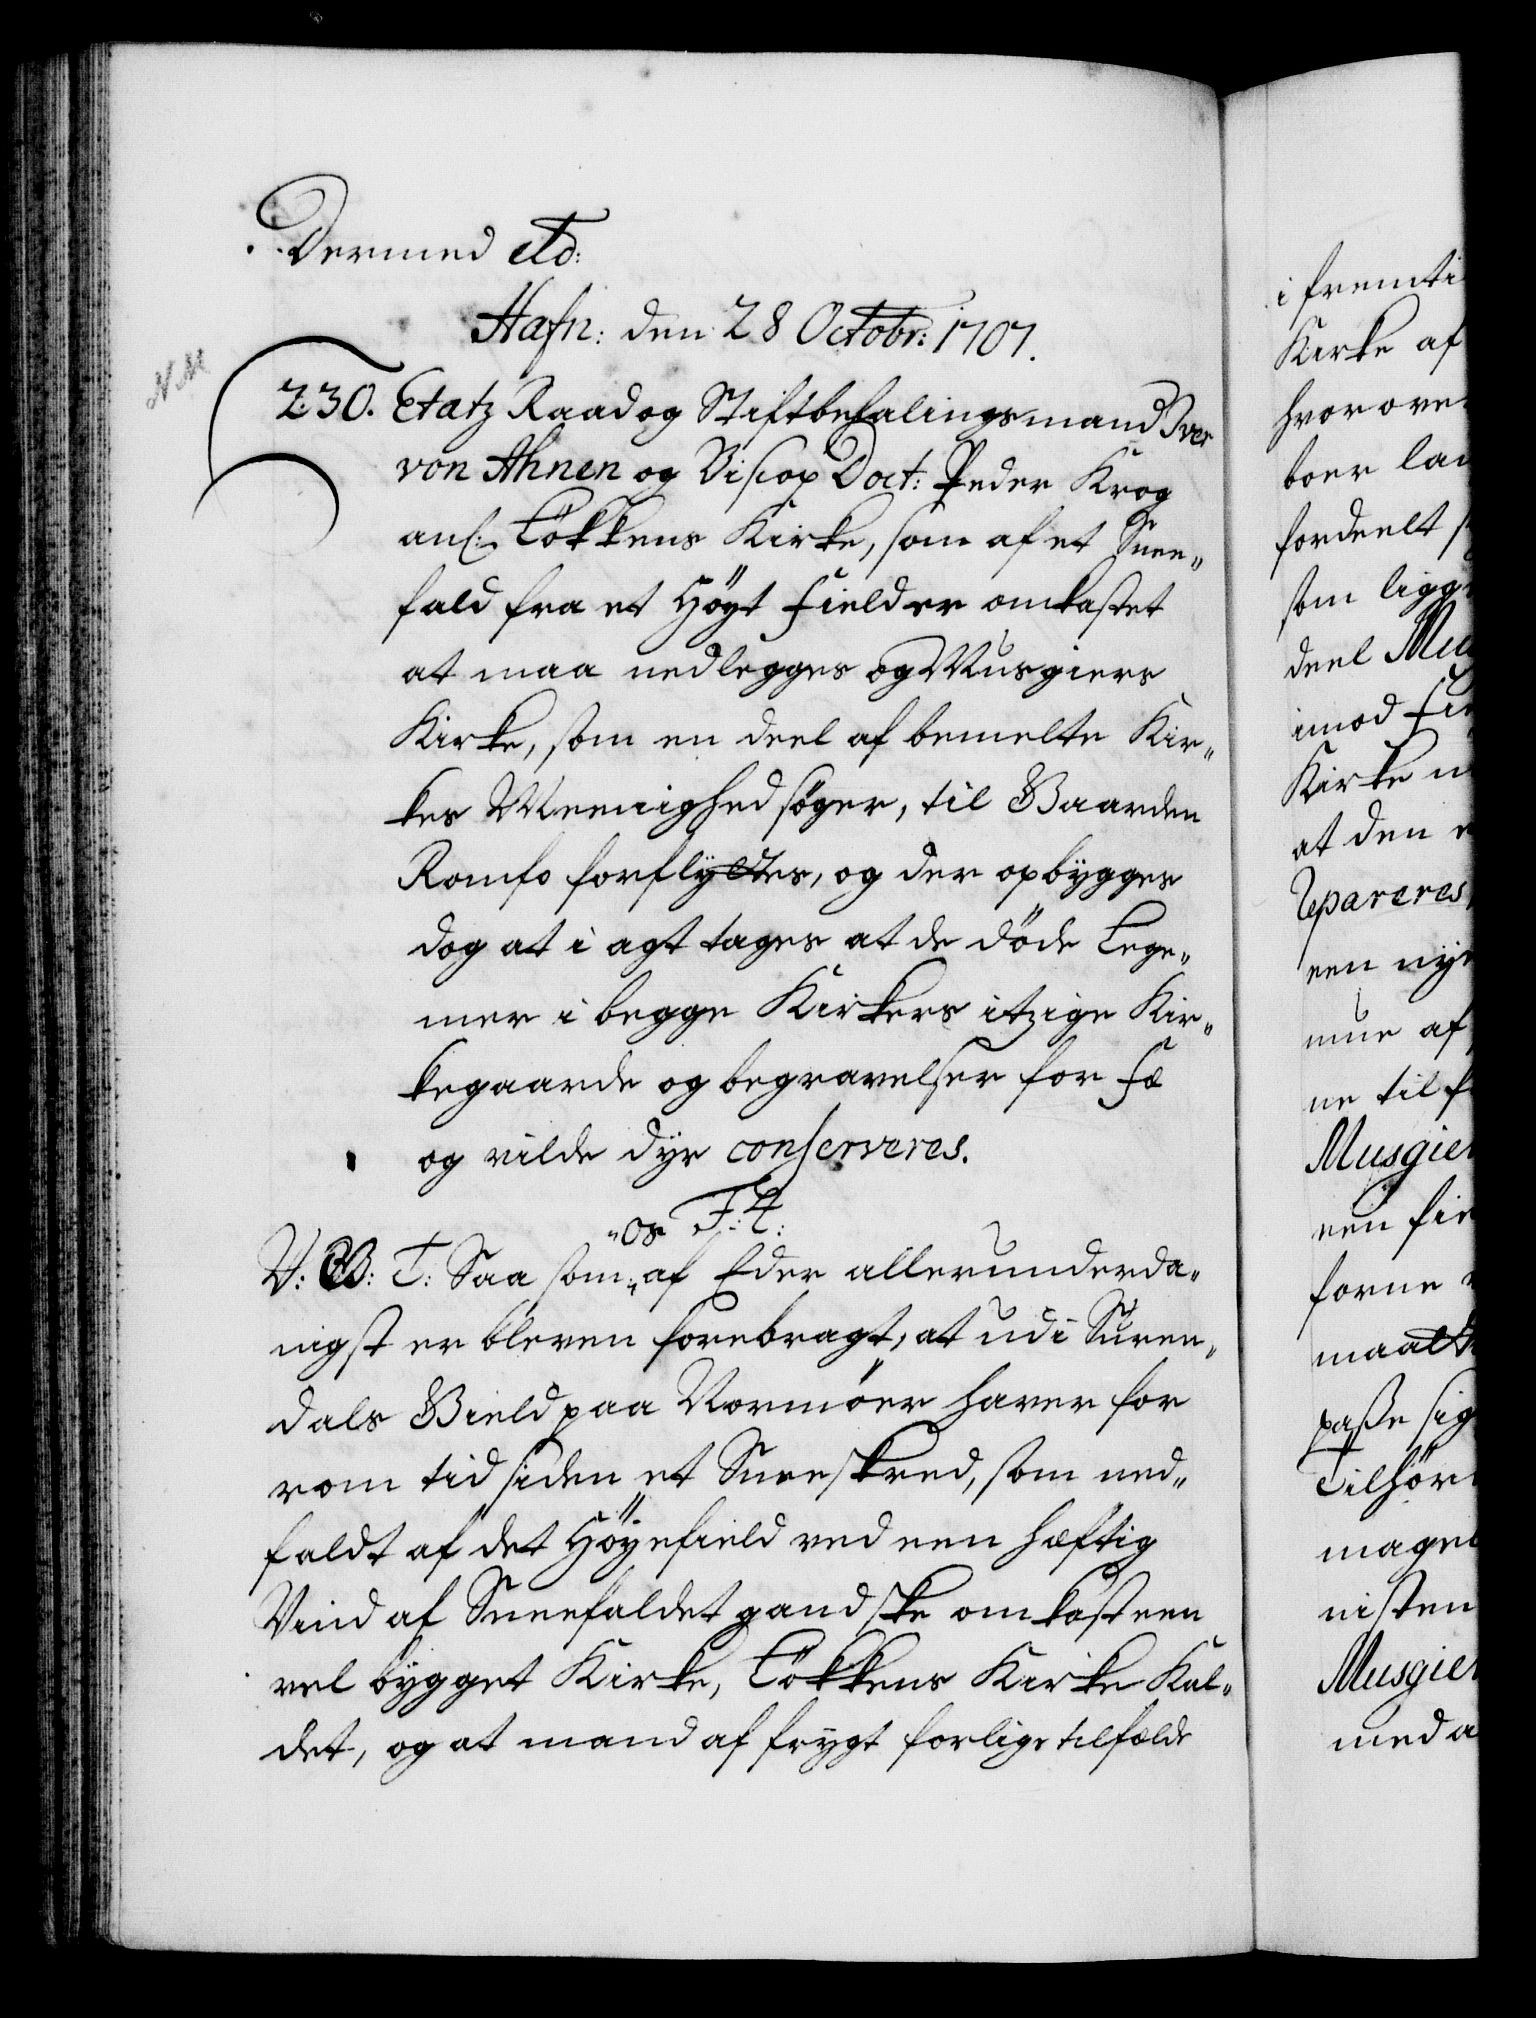 Dermed etc:
Hafn: den 28 Octobr: 1707.
NM
230. Etatz Raad og Stiftbefalingsmand Iver
von Ahnen og Biscop Doct: Peder Krog
anl: Løkkens Kirke, som af et Snee-
fald fra et Høyt Field er omkastet
at maa nedlegges og Musgiers
Kirke, som en deel af bemelte Kir-
kes Meenighed søger, til Gaarden
Romfo forflyctes, og der opbygges
dog at i agt tages at de døde Lege-
mer i begge Kirkers itzige Kir-
kegaarde og begravelser for Fæ
og vilde dyr conserveres.
F: 4:
V: G: T: Saa som os af Eder allerunderda-
nigst er bleven forebragt, at udi Suren-
dals Gield paa Normøer haver for
rom tid siden et Sneeskred, som ned-
faldt af det Høyefield ved een hæftig
Vind af Sneefaldet gandske omkast een
vel bygget Kirke, Løkkens Kirke Kal-
det, og at mand af frygt for lige tilfælde
i fremti
Kirke af
hvorove
boer lan
fordeelt
som ligge
deel Mu
imod Fi
Kirke
at den
repareres
een nye
mue af
ne til
Musgier
een fie
forne
maal
passe sig
Tilhør
mage
nisten
Musgier
med a